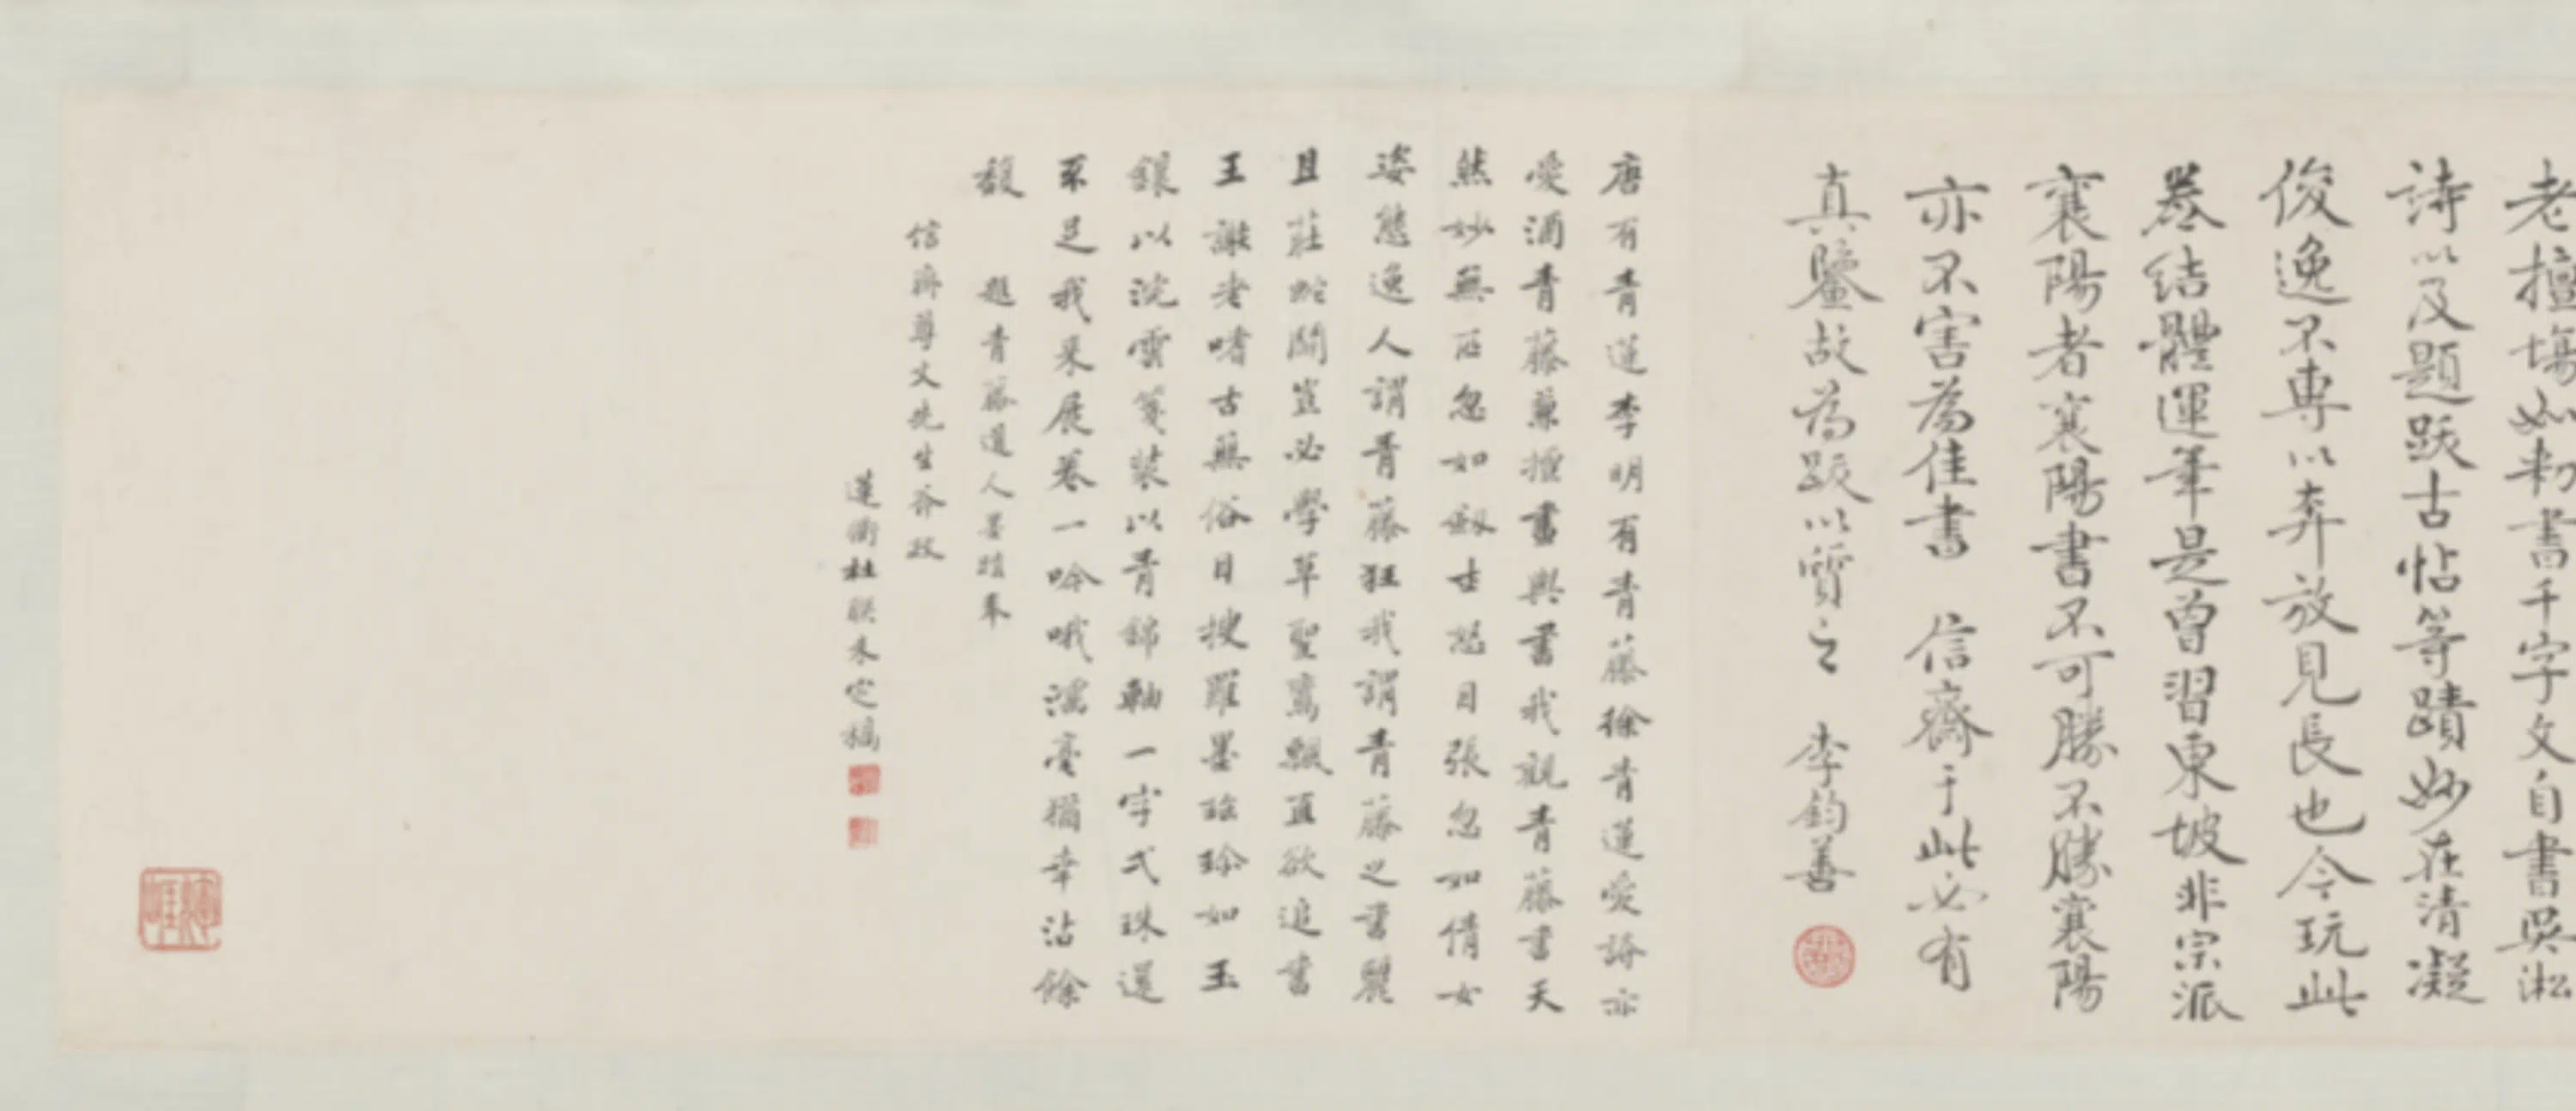 老擅場如勑書千字文自書吳淞
詩以及題跋古帖等蹟妙在清凝
俊逸不專以奔放見長也今玩此
卷結體運筆是曾習東坡非宗派
襄陽者襄陽書不可勝不勝襄陽
亦不害為佳書 信齋于此必有
真鑒故為跋以質之 李鈞善
唐有青蓮李明有青藤徐青蓮愛詩亦
愛酒青藤兼擅畫與書我觀青藤書天
然妙無匹忽如劍士怒目張忽如倩女
姿態逸人謂青藤狂我謂青藤之書麗
且莊蛇鬬豈必學草聖鸞飄直欲追書
王謝老嗜古無俗目搜羅墨珍如玉
鑲以浣雲箋裝以青錦軸一字弌珠還
不足我來展卷一吟哦濡毫猶幸沾餘
馥 題青藤道人墨蹟奉
信齋尊丈先生斧政
蓮衢杜聯未定稿